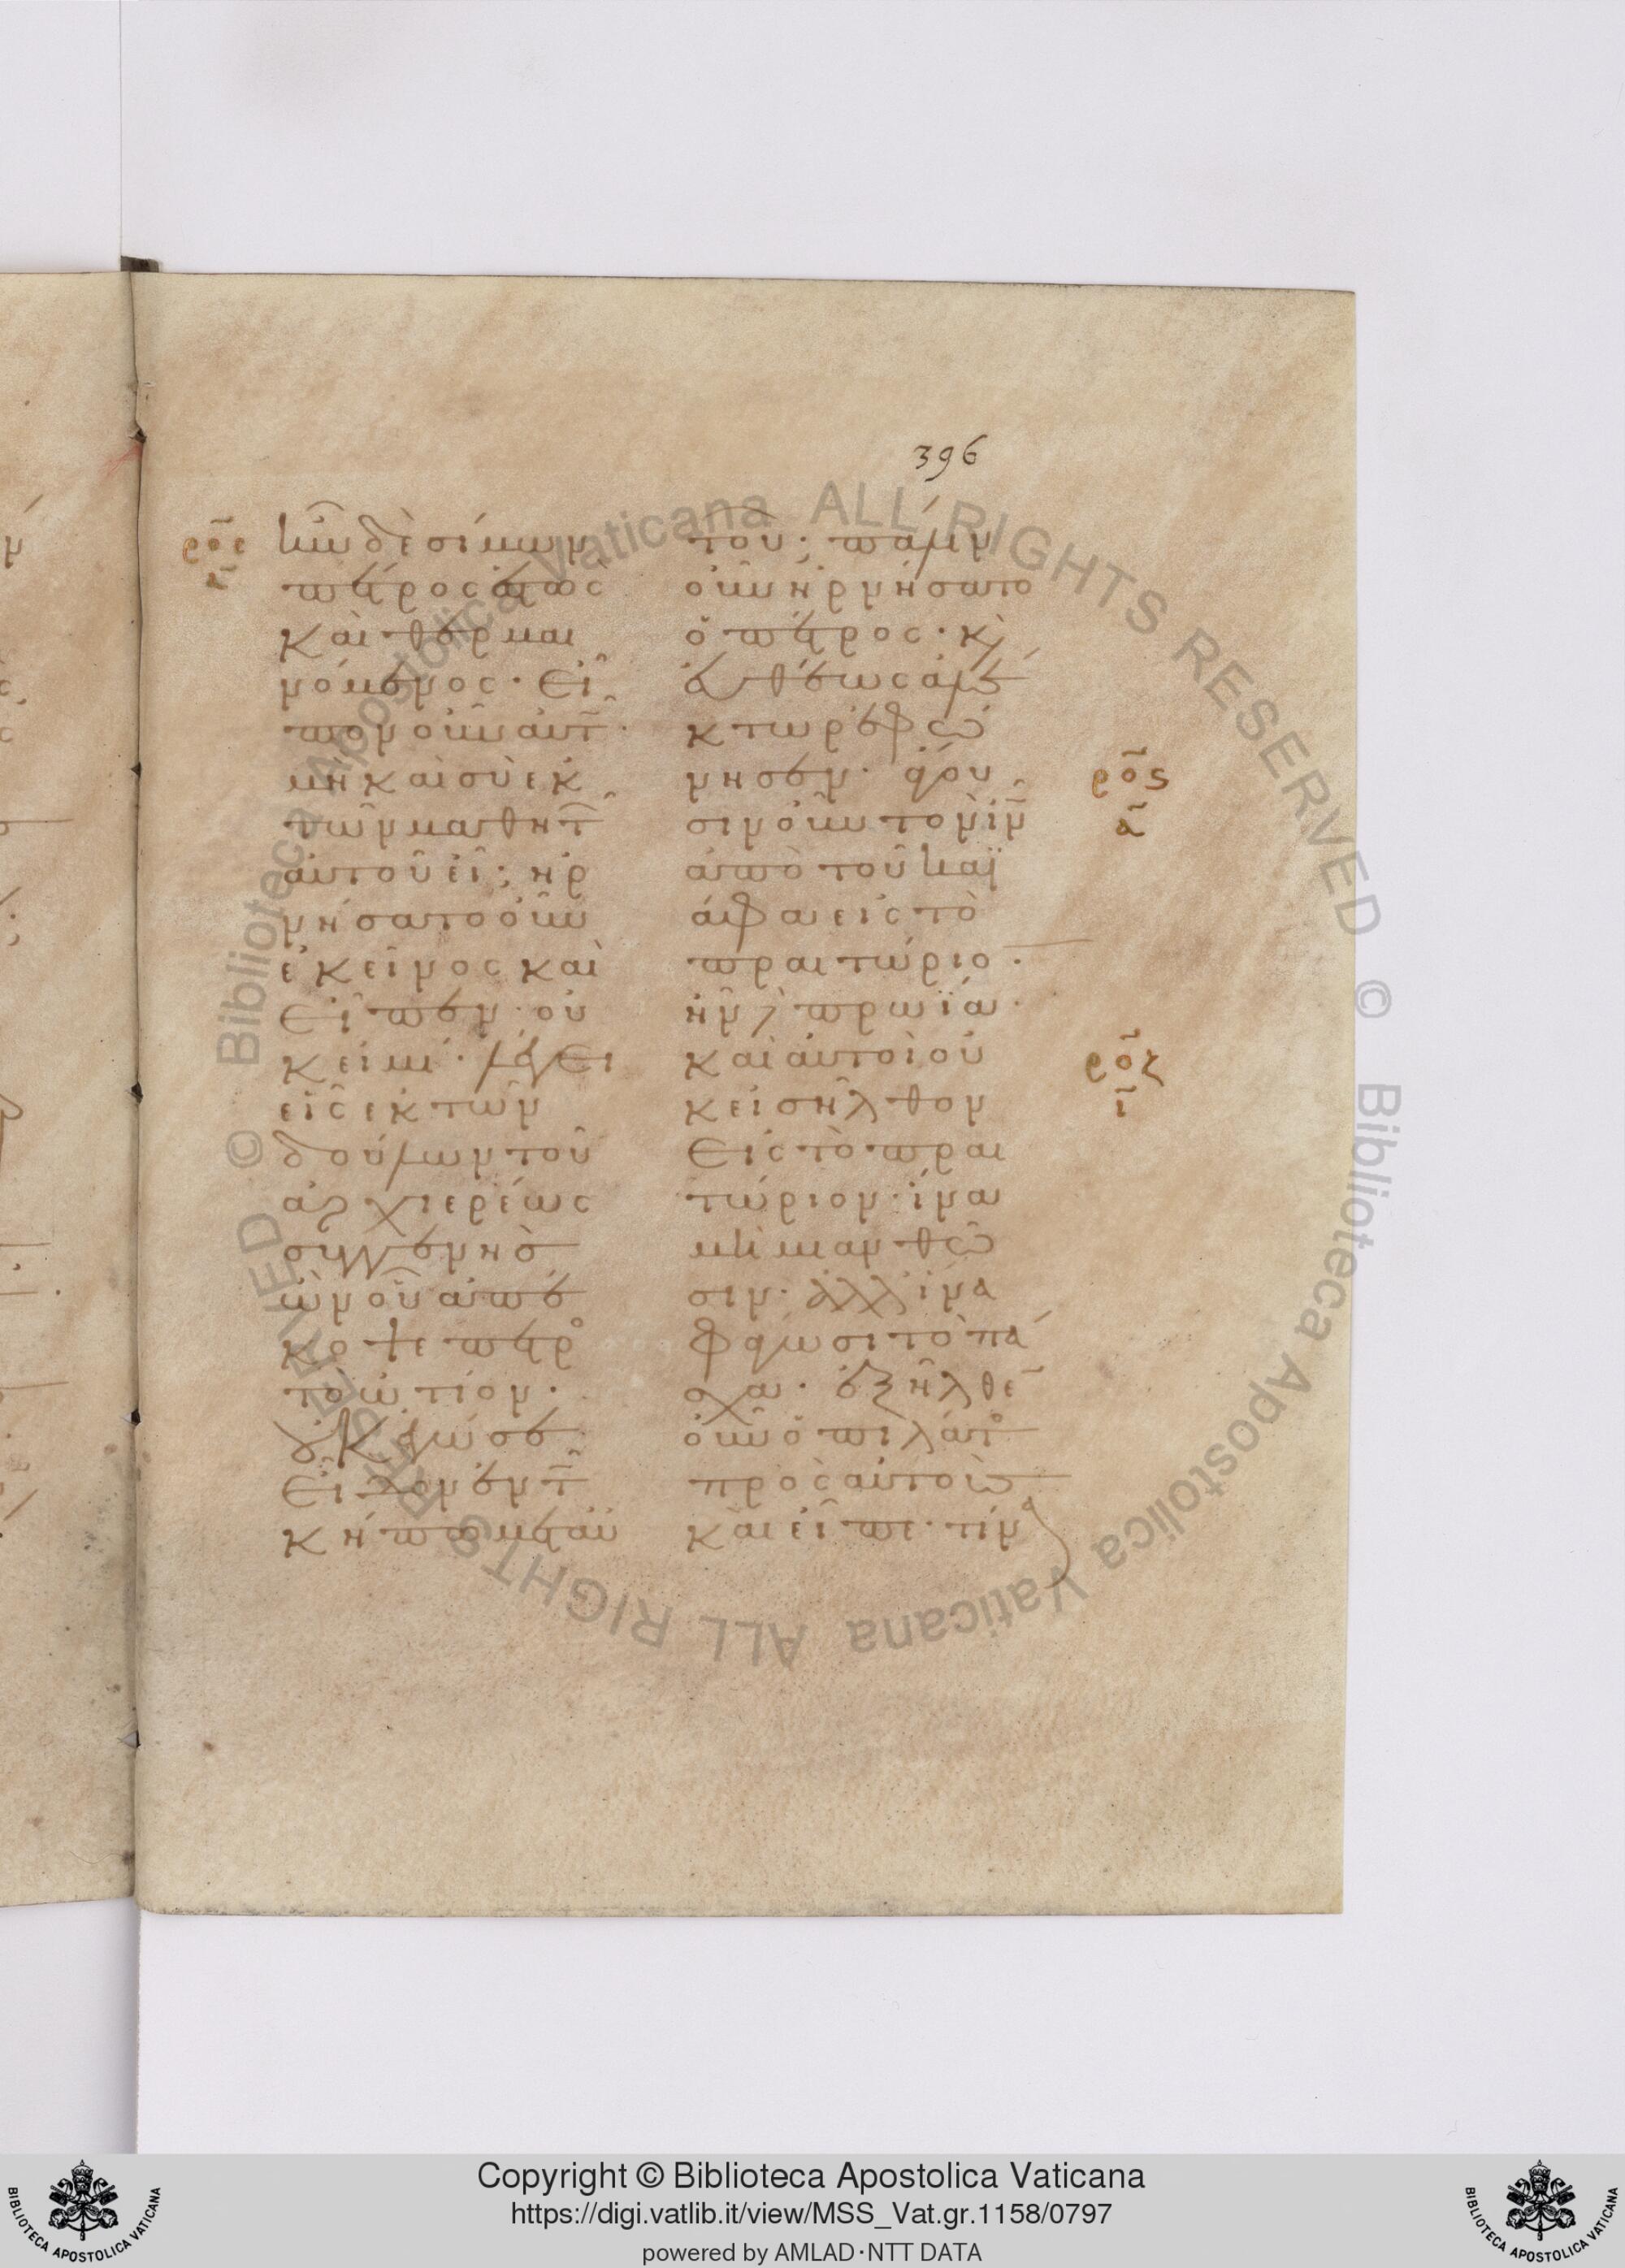 396
ροε
α
ἦν δὲ σίμων
πέτρος ἑστὼς
καὶ θερμαι
νόμενος· εἶ
πον οὖν αὐτῶ·
μὴ καὶ σὺ ἐκ
τῶν μαθητῶν
αὐτοῦ εἶ; ἠρ
νήσατο οὖν
ἐκεῖνος καὶ
εἶπεν· οὐ
κ εἰμί· λέγει
εἷς ἐκ τῶν
δούλων τοῦ
ἀρχιερέως
συγγενὴς
ὢν οὗ ἀπέ
κοψε πέτρος
τὸ ὠτίον·
οὐκ ἐγώ σε
εἶδον ἐν τῶ
κήπω μετ αὐ
τοῦ; πάλιν
οὖν ἠρνήσατο
ὁ πέτρος· κ
εὐθέως ἀλέ
κτωρ ἐφώ
νησεν· ἄγου
σιν οὖν τὸν ιν
ἀπὸ τοῦ καϊ
άφα εἰς τὸ
πραιτώριο·
ἦν δὲ πρωΐα·
καὶ αὐτοὶ οὐ
κ εἰσῆλθον
εἰς τὸ πραι
τώριον· ἵνα
μὴ μιανθῶ
σιν· ἀλλ ἵνα
φάγωσι τὸ πά
σχα· ἐξῆλθε
οὖν ὁ πιλάτος
πρὸς αὐτοὺς
καὶ εἶπε· τίνα
ροϛ
α
ροζ
ι
Copyright © Biblioteca Apostolica Vaticana
https://digi.vatlib.it/view/MSS_Vat.gr.1158/0797
powered by AMLAD·NTT DATA
BIBLIOTECA APOSTOLICA VATICANA
BIBLIOTECA APOSTOLICA VATICANA
© Biblioteca Apostolica Vaticana ALL RIGHTS RESERVED © Biblioteca Apostolica Vaticana ALL RIGHTS RESERVED